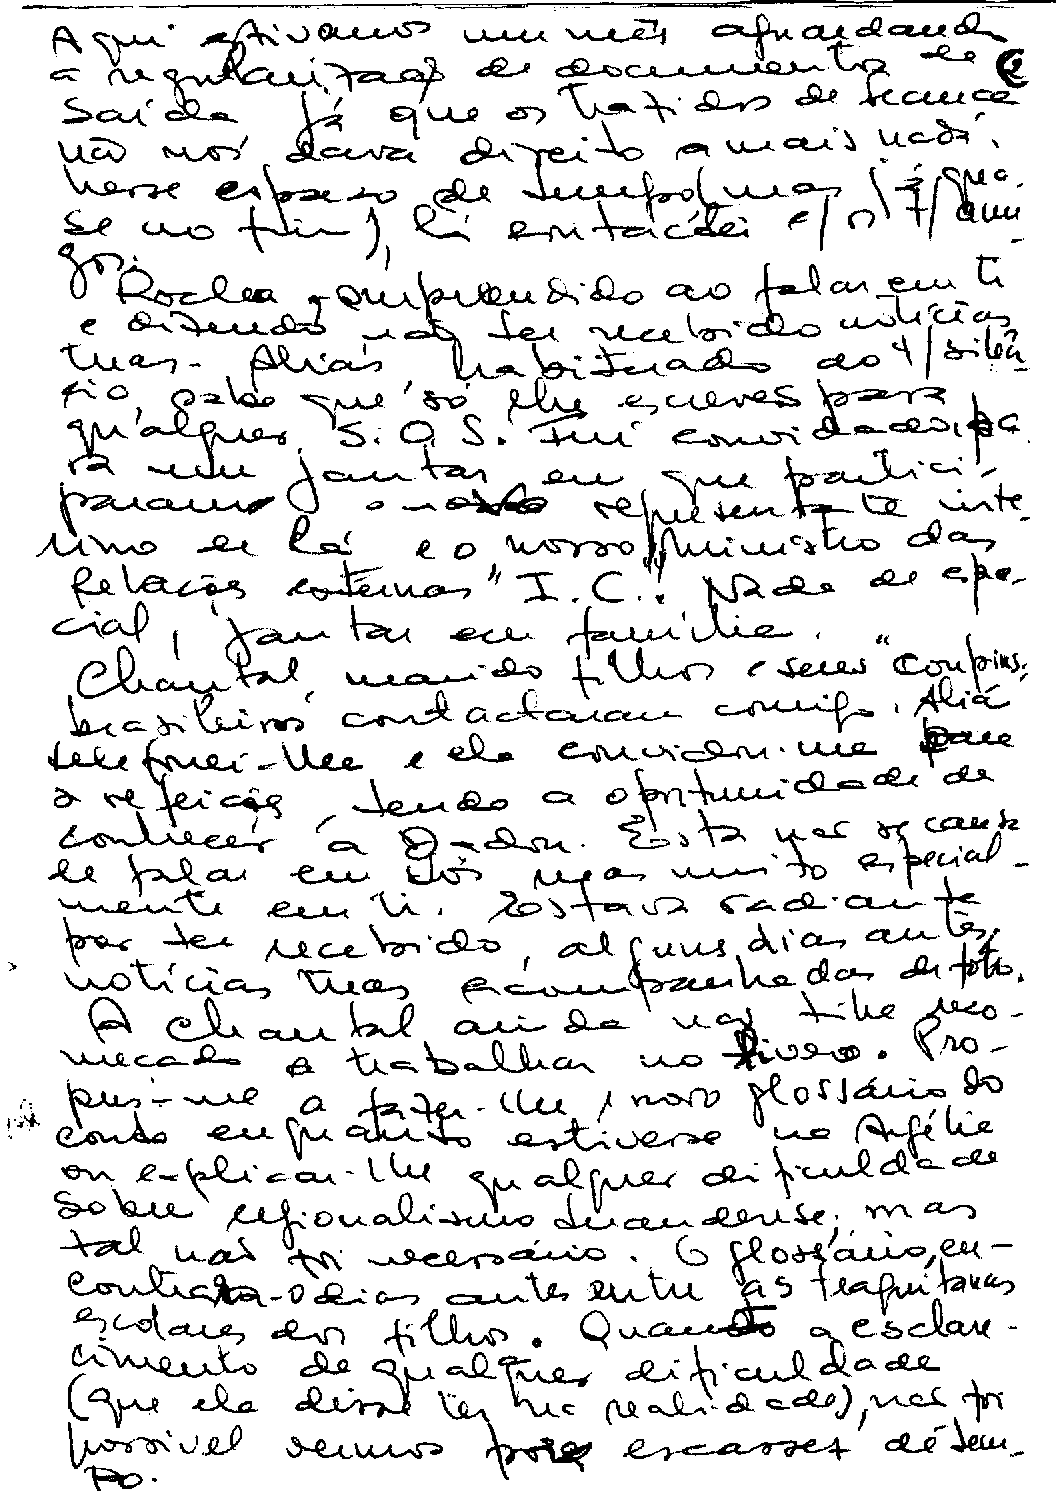 Aqui estivamos um mês aguardando
a regularização de documentos de
2
saída já que os trazidos de
não nos dava direito a mais nada.
nesse espaço de tempo, mas (já qua-
se no fim), lá contactei c/ os t/ ami-
gos.
Rocha, surpreendido ao falar em ti
e dizendo não ter recebido notícias
tuas. Aliás habituado ao t/ silên-
cio, sabe que só lhe escreves para
qualquer S.O.S. Fui convidado pa
ra um jantar em que partici-
param o nosso representante inte-
rino em lá e o nosso "ministro das
Relações externas" I.C.. Nada de espe-
cial, jantar em família.
Chantal, marido filhos e seus "coupins"
brasileiros contactaram comigo. Aliá
telefonei-lhe e ela convidou-me para
a refeição, tendo a oportunidade de
conhecer a Dadon. Esta não se cansa
de falar em vós mas muito especial-
mente em ti. Estava radiante
por ter recebido, alguns dias antes,
notícias tuas acompanhadas de foto.
A Chantal ainda não tinha reco-
meçado a trabalhar no livro. Pro-
pus-me a fazer-lhe 1 novo glossário do
conto enquanto estivesse na Argélia
ou explicar-lhe qualquer dificuldade
sobre regionalismo luandense, mas
tal não foi necessário. O glossário, en-
contrara-o dias antes entre as traquitanas
escolares dos filhos. Quanto a esclare-
cimento de qualquer dificuldade
(que ela disse ter na realidade), não foi
possível vermos por escassez de tem-
po.